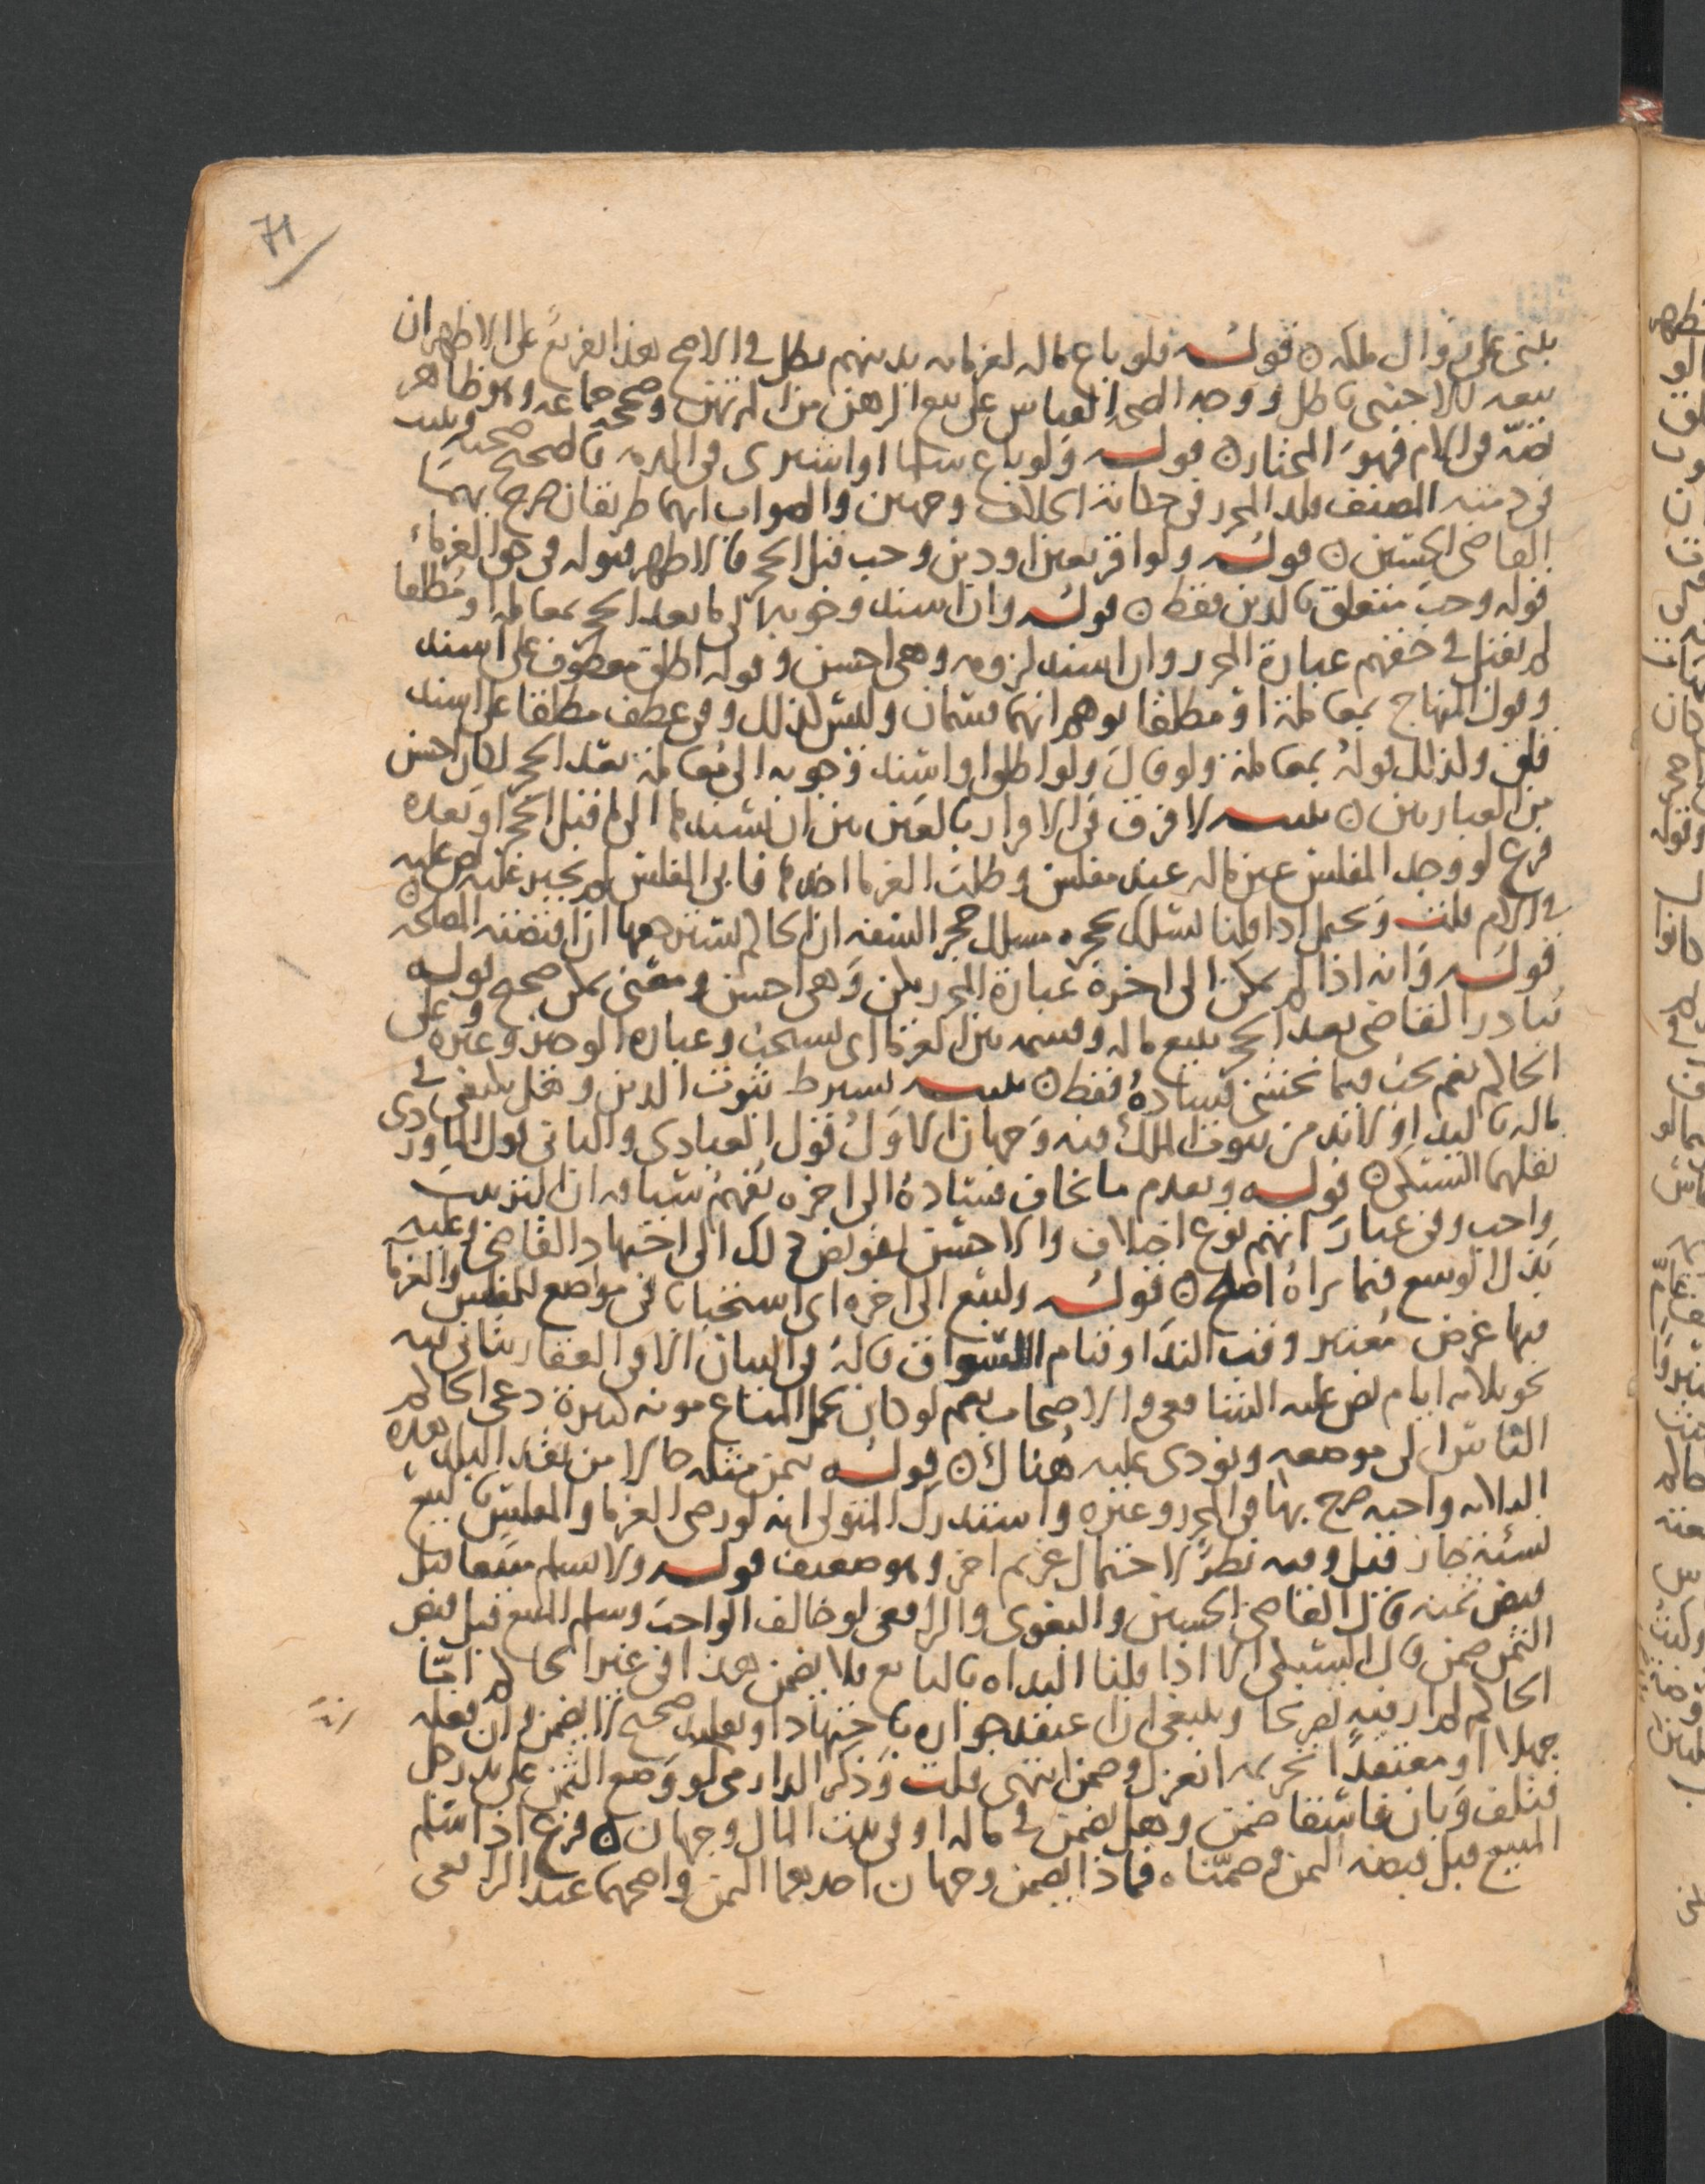 71
يبتنى على زوال ملكه ٥ قوله فلو باع ماله لغرمائه بدينهم بطل في الاصح هذا تفريع على الاظهر ان
بيعه للاجنبي باطل ووجه الصحة القياس على بيع الرهن من المرتهن وصححه جماعة وهو ظاهر
نصه في الام فهو المختار ٥ قوله ولو باع سلما او اشترى في الذمة فالصحيح صحته ويثبت
في ذمته المصنف قلد المحرر في حكاية الخلاف وجهين والصواب انهما طريقان صرح بهما
القاضي الحسين ٥ قوله ولو اقر بعين او دين وجب قبل الحجر فالاظهر قبوله في حق الغرماء
قوله وجب متعلق بالدين فقط ٥ قوله وان اسند وجوبه الى ما بعد الحجر بمعاملة او مطلقا
لم يقبل في حقهم عبارة المحرر وان اسند لزومه وهي احسن وقوله اطلق معطوف على اسند
وقول المنهاج بمعاملة او مطلقا يوهم انهما قسمان وليس كذلك وفي عطف مطلقا على اسند
قلق ولذلك قوله بمعاملة ولو قال ولو اطلق او اسند وجوبه الى معاملة بعد الحجر لكان احسن
من العبارتين ٥ تنبيه لا فرق في الاقرار بالعين بين ان يسندها الى ما قبل الحجر او بعده
فرع لو وجد المفلس عين ماله عند مفلس وطلب الغرما اخذها فابى المفلس لم يجبر عليه نص عليه
في الام قلت ويحتمل اذا قلنا يسلك بحجره مسلك حجر السفه ان الحاكم يسترجعها اذا اقتضته المصلحة ٥
قوله وانه اذا لم يمكن الى اخره عبارة المحرر يكن وهي احسن ومعنى يمكن صحيح قوله
يبادر القاضي بعد الحجر ببيع ماله وقسمه بين الغرما اي يستحب وعبارة الوجيز وغيره وعلى
الحاكم نعم يجب فيما يخشى فساده فقط ٥ تنبيه يشترط ثبوت الدين وهل يكفي في
ماله باليد او لا بد من ثبوت الملك فيه وجهان الاول قول العبادي والثاني قول الماوردي
نقلهما السبكي ٥ قوله ويقدم ما يخاف فساده الى اخره يفهم سياقه ان الترتيب
واجب وفي عباراتهم نوع اختلاف والاحسن تفويض ذلك الى اجتهاد القاضي وعليه
بذل الوسع فيما يراه اصلح ٥ قوله وليبع الى اخره اي استحبابا في مواضع للمفلس والغرما
فيها غرض معتبر وقت الندا وقيام السوق قاله في البيان الا في العقار يتانى به
نحو ثلاثة ايام نص عليه الشافعي والاصحاب نعم لو كان بحمل المتاع مونة كبيرة دعى الحاكم
الناس الى موضعه ونودي عليه هناك ٥ قوله بثمن مثله حالا من نقد البلد هذه
الثلاثة واجبة صرح بها في المحرر وغيره واستدرك المتولي انه لو رضي الغرما والمفلس بالبيع
نسئة جاز قيل وفيه نظر لاحتمال غريم اخر وهو ضعيف قوله ولا يسلم مبيعا قبل
قبض ثمنه قال القاضي الحسين والبغوي والرافعي لو خالف الواجب وسلم المبيع قبل قبض
الثمن ضمن قال السبكي الا اذا قلنا البداة بالبايع فلا يضمن هذا في غير الحاكم اما
الحاكم لم ار فيه تصريحا وينبغي ان اعتقد جوازه باجتهاد او تقليد صحيح لا يضمن وان فعله
جهلا او معتقدا تحريمه انعزل وضمن انتهى قلت وذكر الدارمي لو وضع الثمن على يد رجل
فتلف وبان فاسقا ضمن وهل يضمن في ماله او في بيت المال وجهان ٥ فرع اذا سلم
المبيع قبل قبضه الثمن وضمناه فماذا يضمن وجهان احدهما الثمن واصحهما عند الرافعي